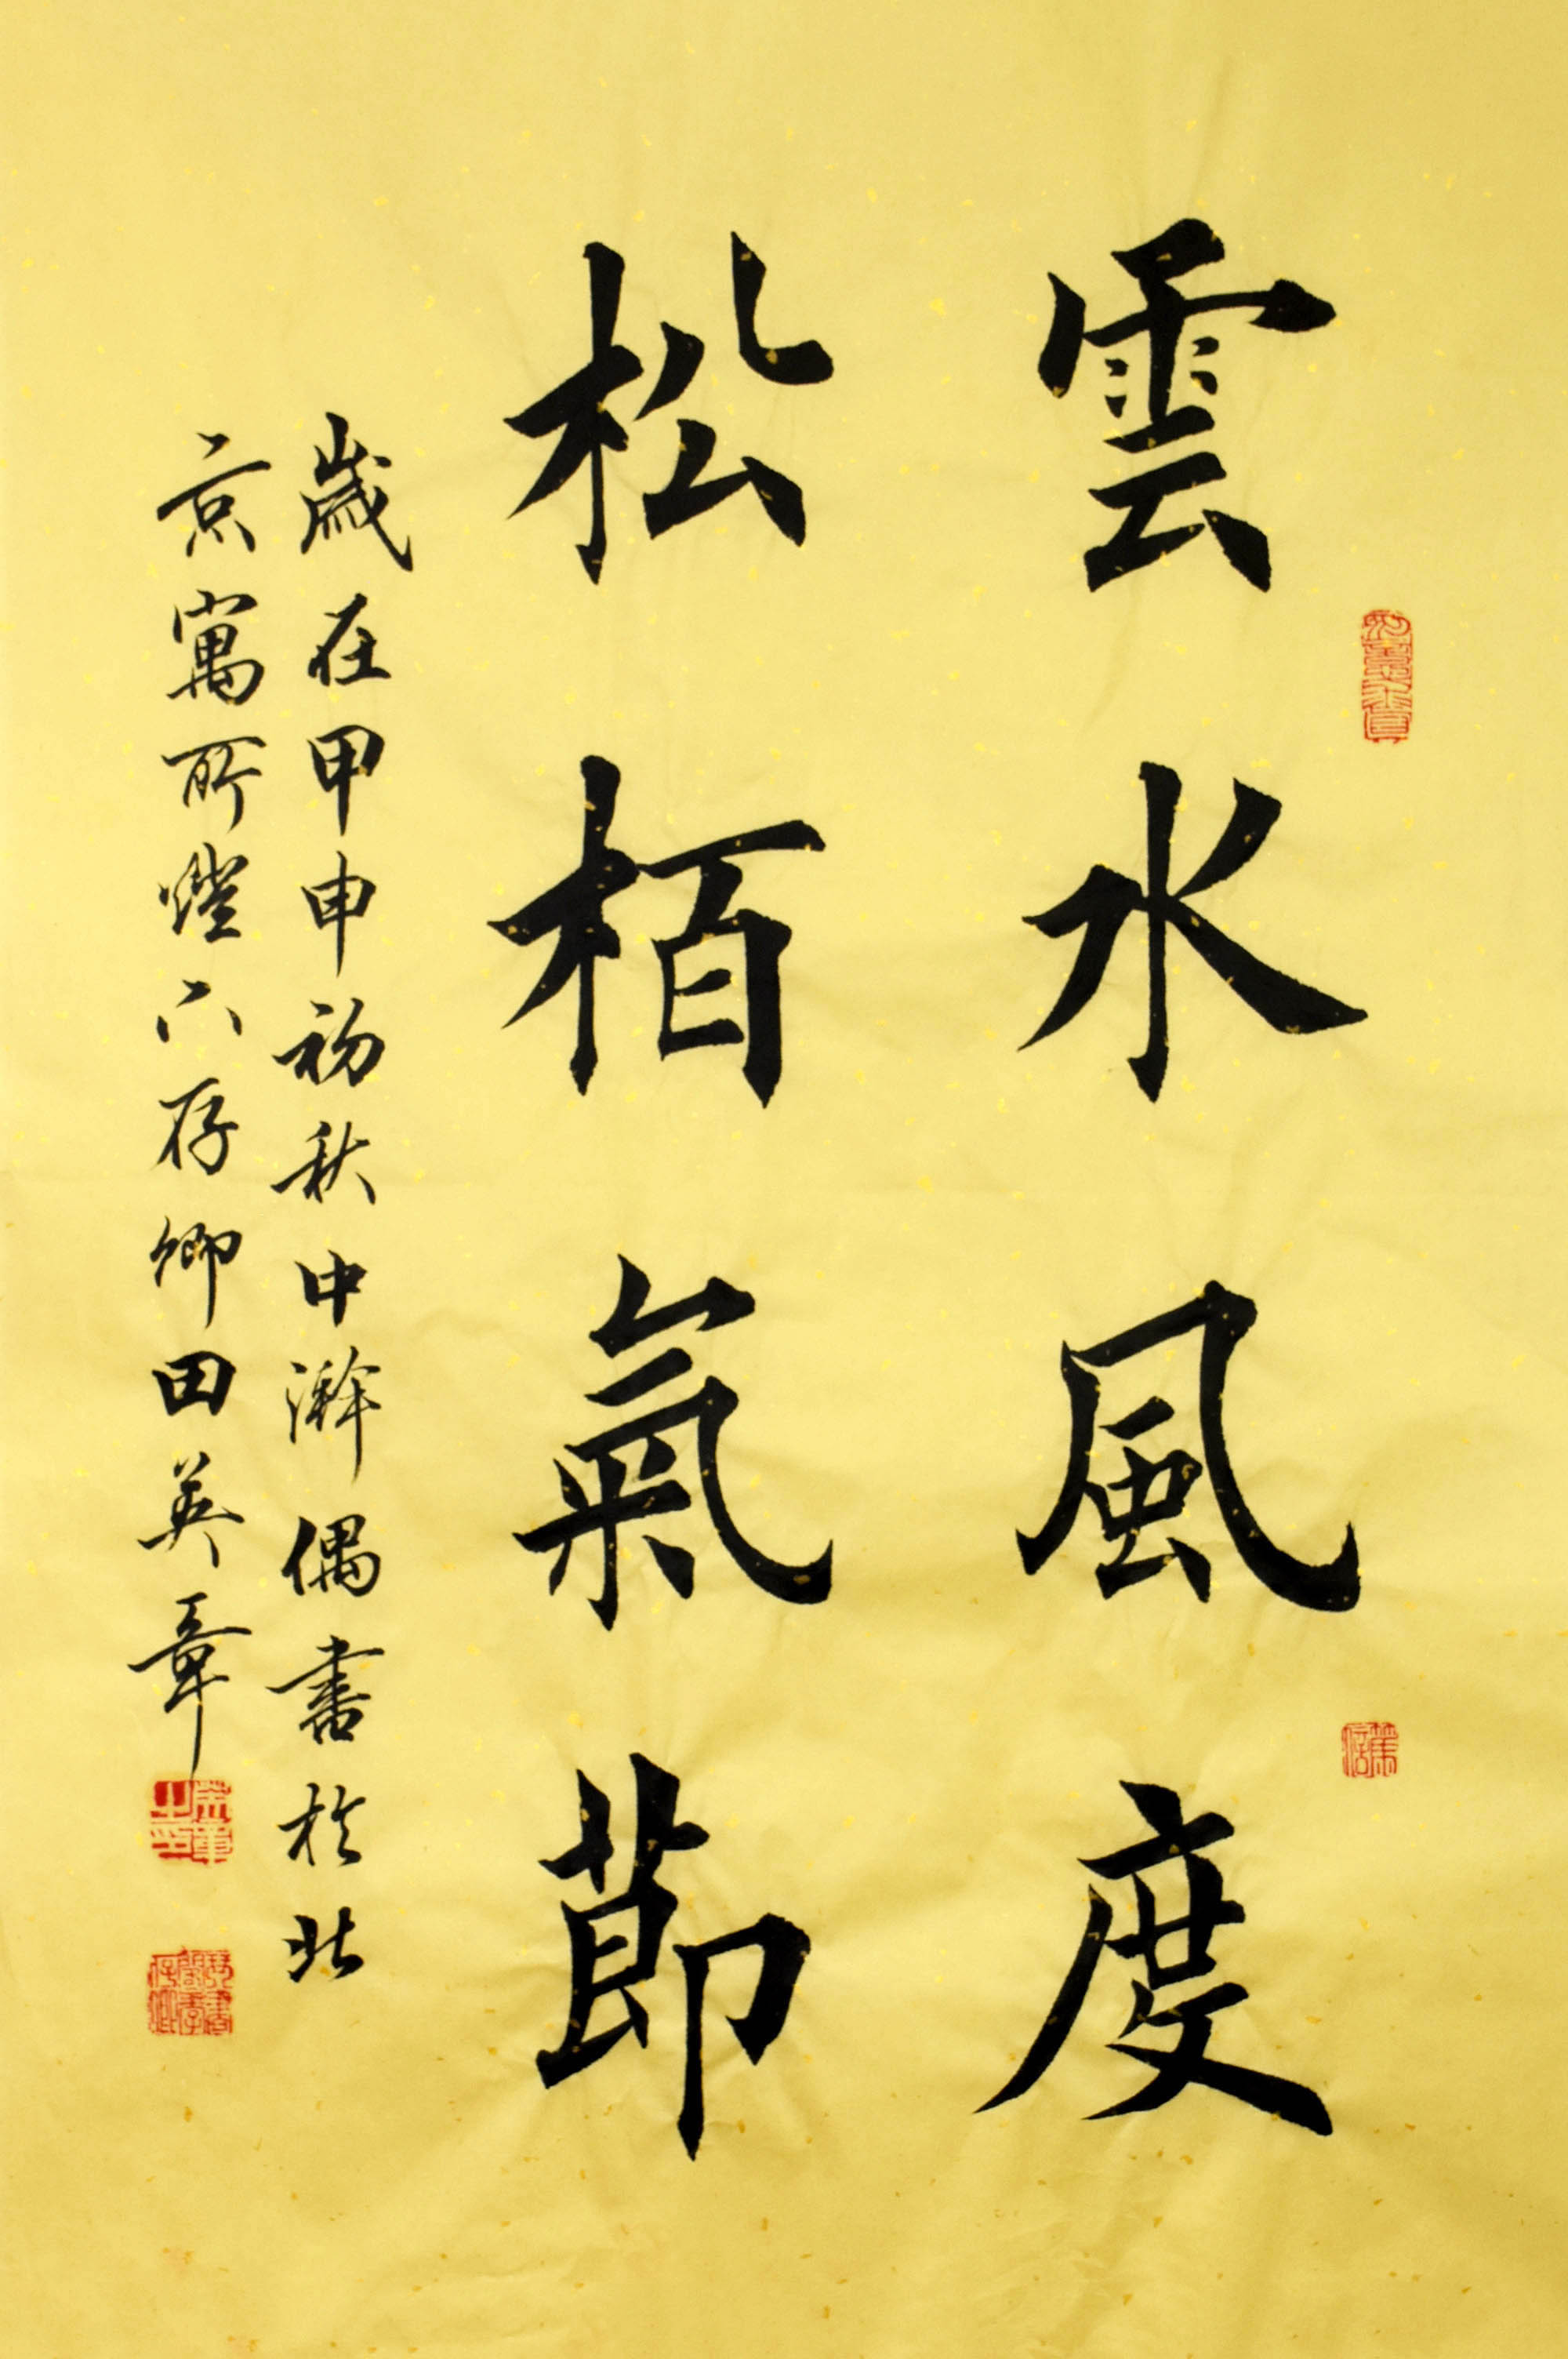 雲水風度
松栢氣節
歲在甲申初秋中澣偶書於北
京寓所燈下存卿田英章